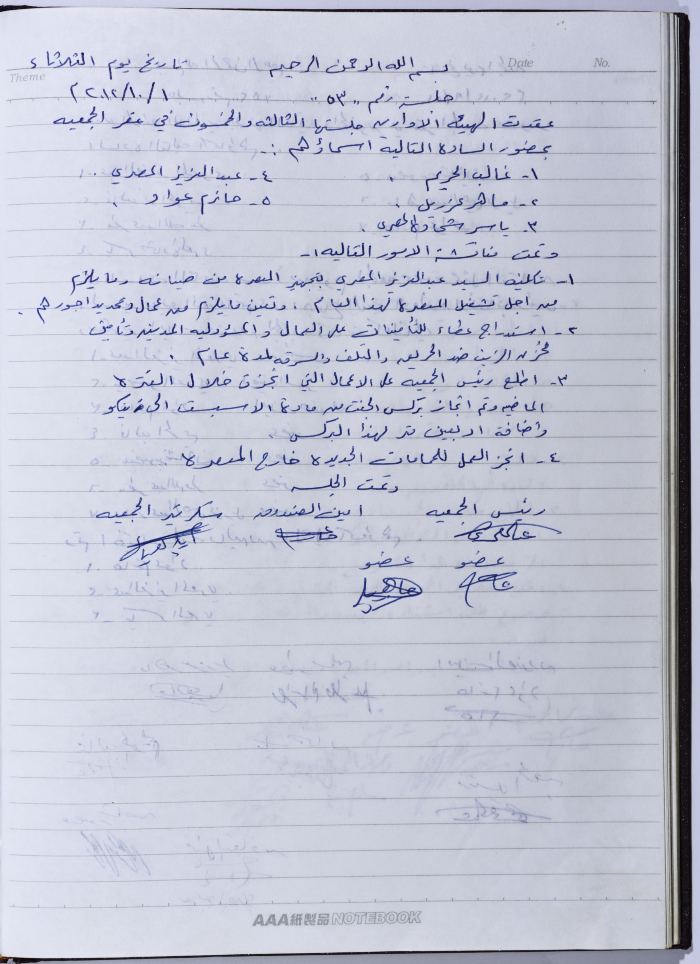 Date No.
Theme
بسم الله الرحمن الرحيم تاريخ يوم الثلاثاء
جلسة رقم "٥٣" ٢٠١٢/١٠/١
عقدت الهيئة الادارية جلستها الثالثة والخمسون في مقر الجمعيه
بحضور السادة التالية اسماؤهم :-
١- غالب الحريم . ٤- عبد العزيز المصري .
٢- ماهر . ٥- حازم عواد .
٣- ياسر شحادة المصري .
وتمت مناقشة الامور التالية :-
١- تكليف السيد عبد العزيز المصري بتجهيز المعصرة من صيانه وما يلزم
من اجل تشغيل المعصرة لهذا العام . وتعين ما يلزم من عمال وتحديد اجورهم .
٢- استدراج عطاء للتأمينات على العمال والمسؤوليه المدنيه وتأمين
مخزن الزيت ضد الحريق والتلف والسرقه لمدة عام .
٣- اطلع رئيس الجمعيه على الاعمال التي انجزت خلال الفترة
الماضيه وتم انجاز بركس الجفت من مادة الاسبست الى زينكو
واضافة اربعين متر لهذا البركس .
٤- انجز العمل للحمامات الجديدة خارج المعصرة
وتمت الجلسه
رئيس الجمعيه امين الصندوق سكرتير الجمعيه
عضو عضو
AAA紙製品 NOTEBOOK